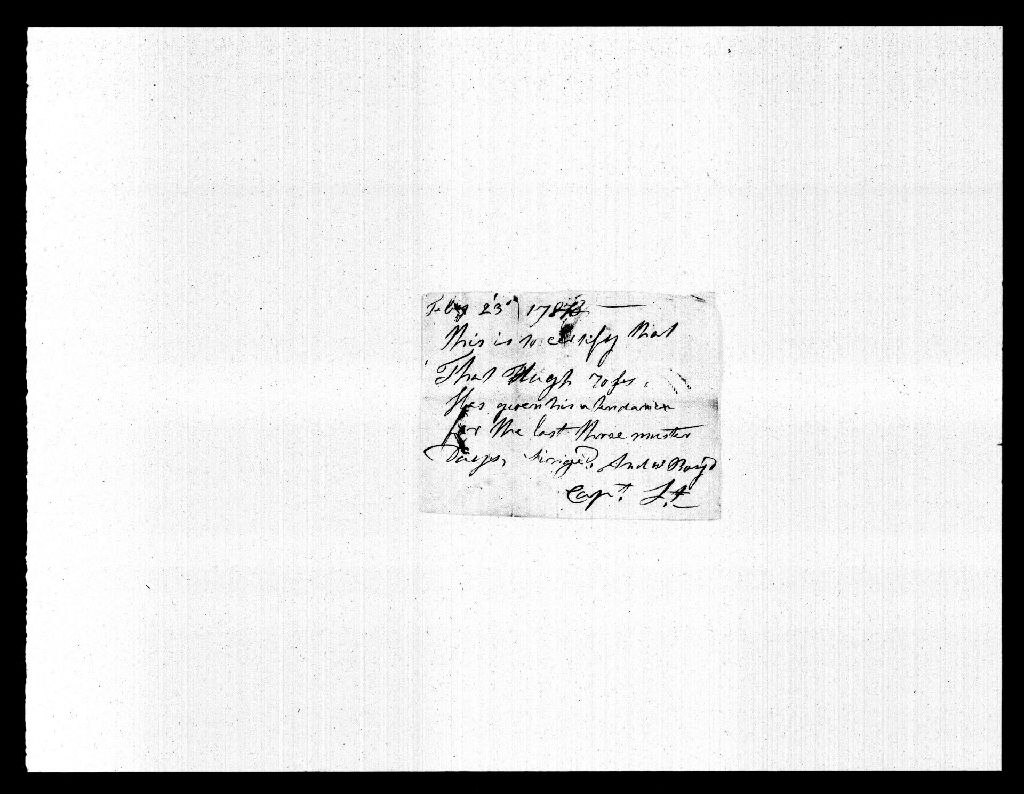 Feby 23d 178
This is to certify that
That Hugh
Has given his atendance
for the last three muster
Days, Andw Boyd
Capt. Lt